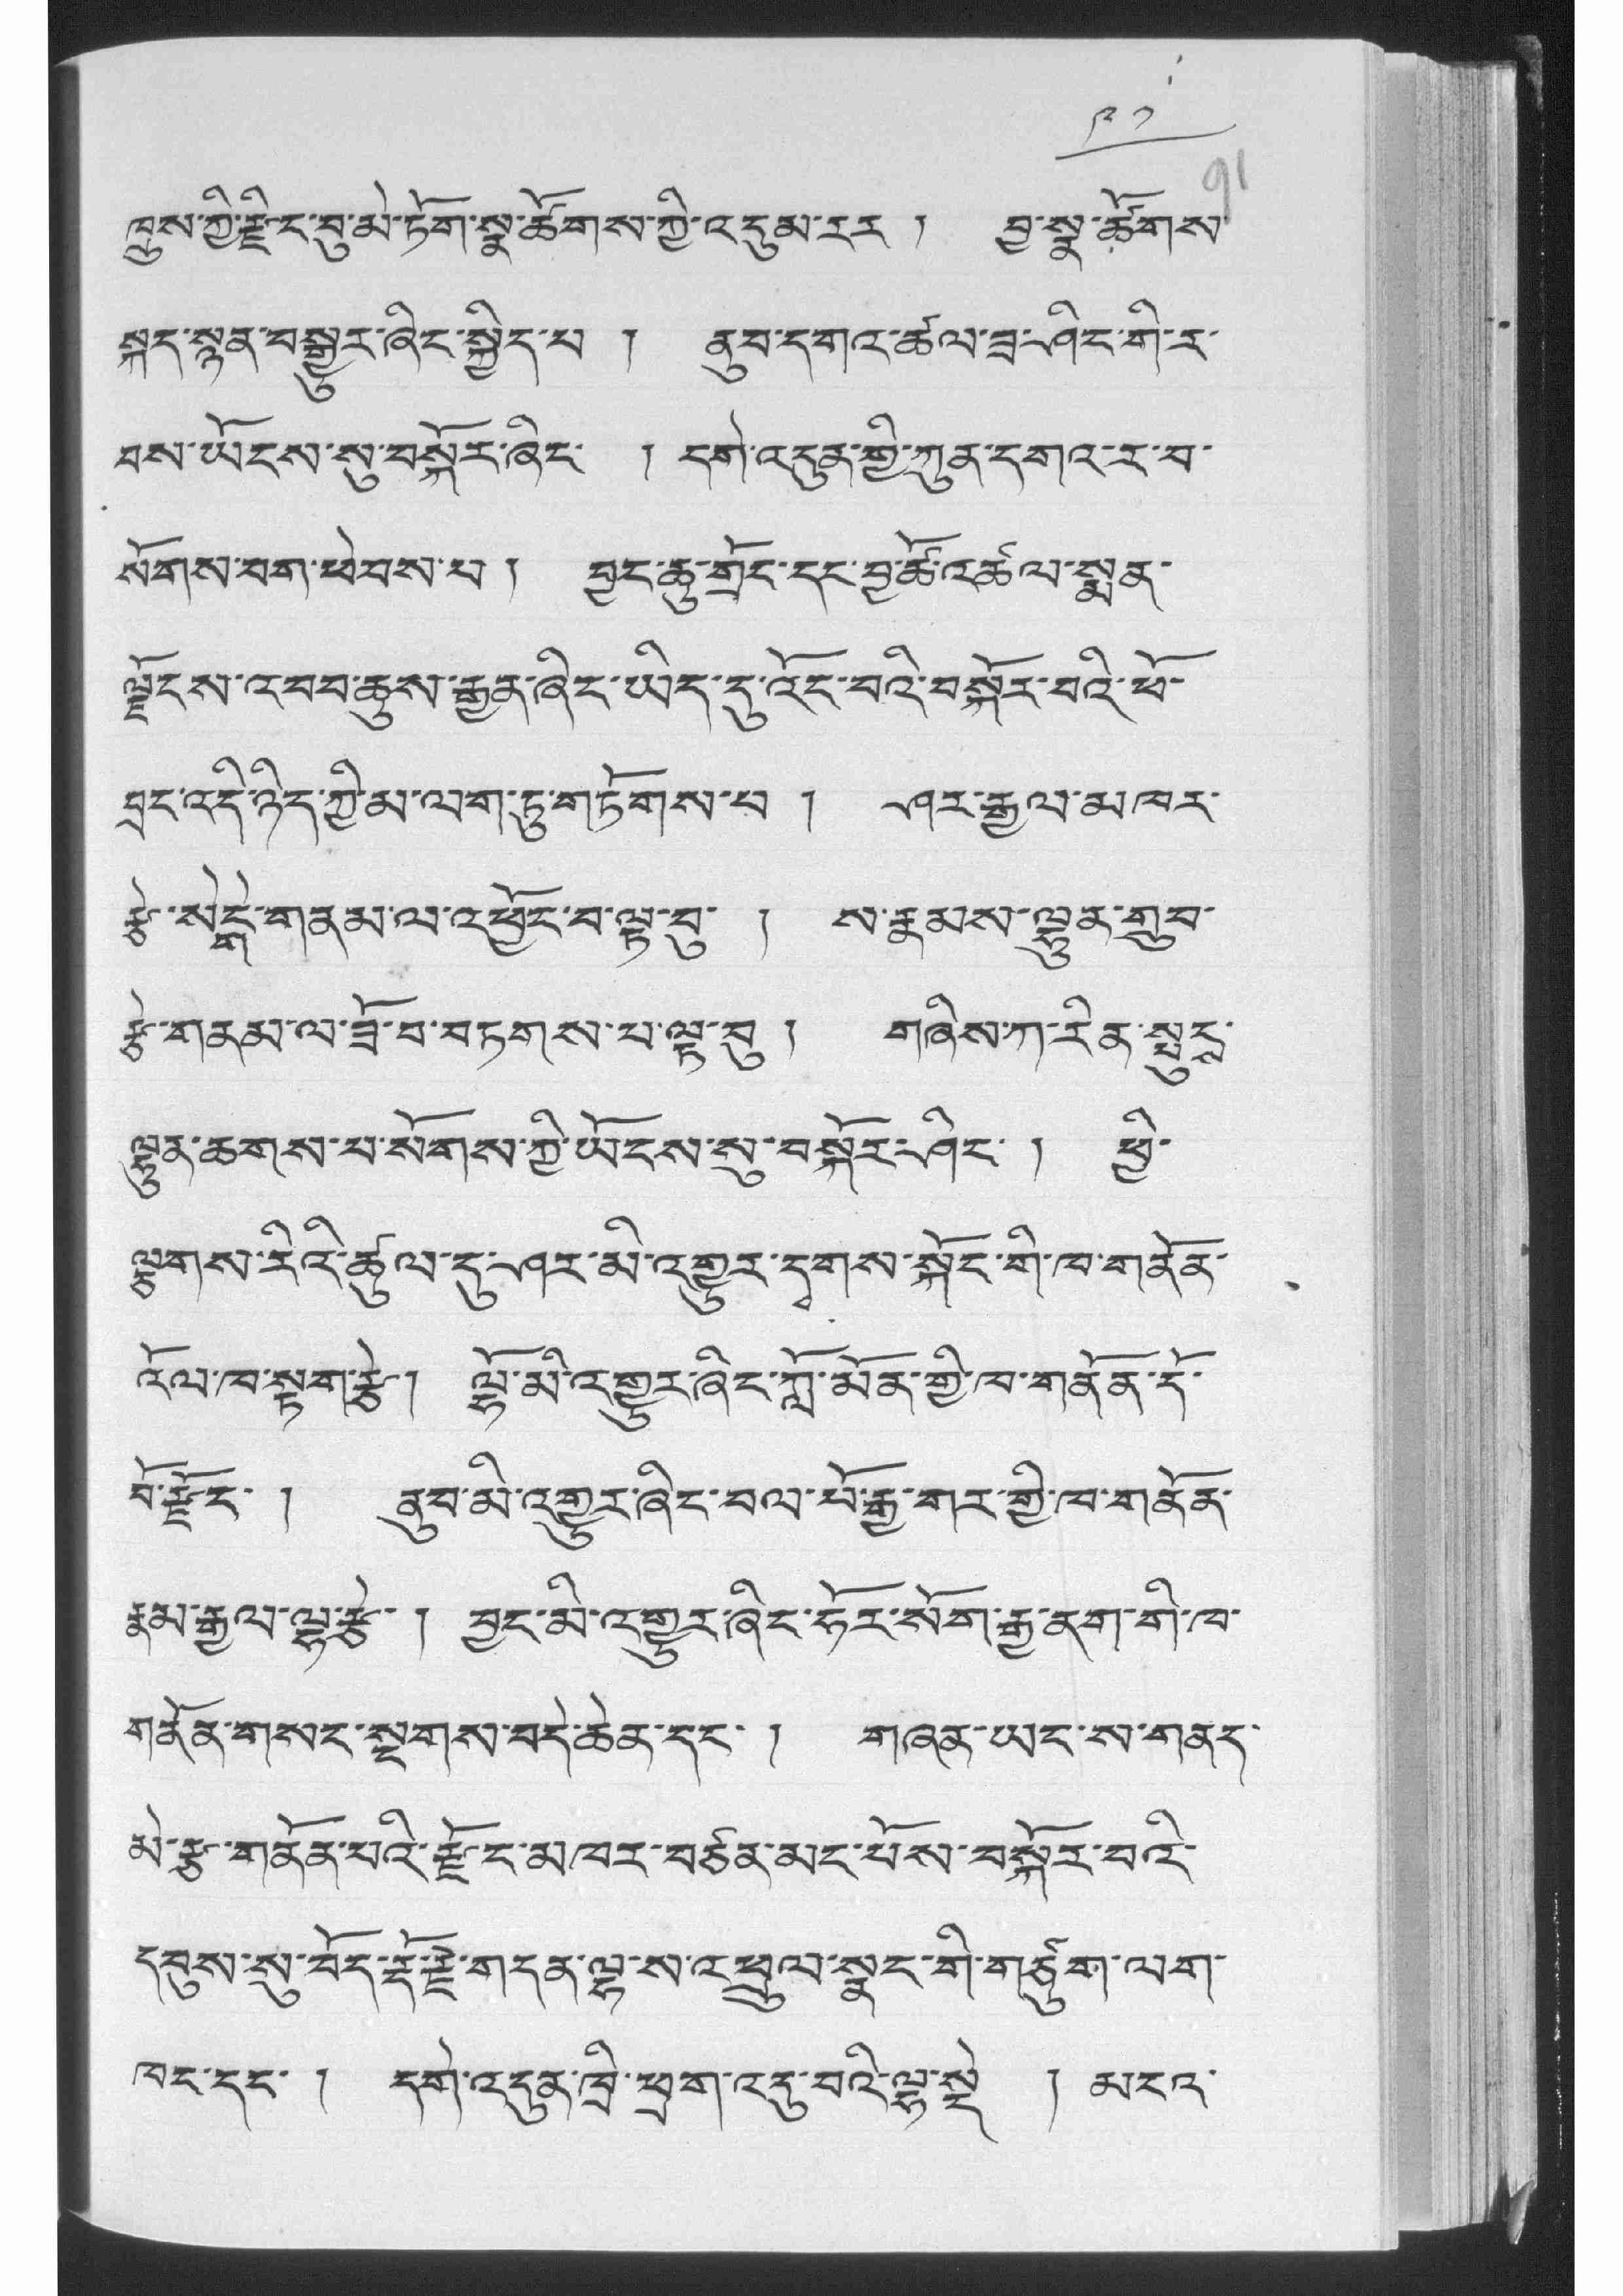 ༩༡
91
ཁྲུས་ཀྱི་རྫིང་བུ་མེ་ཏོག་སྣ་ཚོགས་ཀྱི་འདུམ་རར །   བྱ་སྣ་ཚོགས
སྐད་སྙན་བསྒྱུར་ཞིང་སྐྱིད་པ །   ནུབ་དགའ་ཚལ་ཟྭ་ཤིང་གི་ར་
བས་ཡོངས་སུ་བསྐོར་ཞིང་ །  དགེ་འདུན་གྱི་ཀུན་དགའ་ར་བ་
སོགས་བག་ཕེབས་པ །   བྱང་ཆུ་གྲོང་དང་བྱ་ཚོ་འཚལ་སྨན་
ལྗོངས་འབབ་ཆུས་རྒྱན་ཞིང་ཡིད་དུ་འོང་བའི་བསྐོར་བའི་ཕོ་
བྲང་འདི་ཉིད་ཀྱི་མ་ལག་ཏུ་གཏོགས་པ །   ཤར་རྒྱལ་མཁར་
རྩེ་སེངྒེ་གནམ་ལ་འཕྱོང་བ་ལྟ་བུ་ །   ས་རྣམས་ལྷུན་གྲུབ་
རྩེ་གནམ་ལ་བློ་བ་བཏགས་པ་ལྟ་བུ །   གཞིས་ཀ་རིན་སྤུངྶ་
ལྷུན་ཆགས་པ་སོགས་ཀྱི་ཡོངས་སུ་བསྐོར་ཤིང་ །   ཕྱི་
ལྕགས་རིའི་ཚུལ་དུ་ཤར་མི་འགྱུར་དྭགས་སྐོང་གི་ཁ་གནོན་
འོལ་ཁ་སྟག་རྩེ །  ལྷོ་མི་འགྱུར་ཞིང་ཀློ་མོན་གྱི་ཁ་གནོན་དོ་
བོ་རྫོང་ །   ནུབ་མི་འགྱུར་ཞིང་བལ་པོ་རྒྱ་གར་གྱི་ཁ་གནོན་
རྣམ་རྒྱལ་ལྷ་རྩེ་ །  བྱང་མི་འགྱུར་ཞིང་ཧོར་སོག་རྒྱ་ནག་གི་ཁ་
གནོན་གསང་སྔགས་བདེ་ཆེན་དང་ །   གཞན་ཡང་ས་གནད་
མེ་རྩ་གནོན་པའི་རྫོང་མཁར་བཙན་མང་པོས་བསྐོར་བའི་
དབུས་སུ་བོད་རྡོ་རྗེ་གདན་ལྷ་ས་འཕྲུལ་སྣང་གི་གཙུག་ལག་
ཁང་དང་ །   དགེ་འདུན་ཁྲི་ཕྲག་འདུ་བའི་ལྷ་སྡེ །  མངའ་